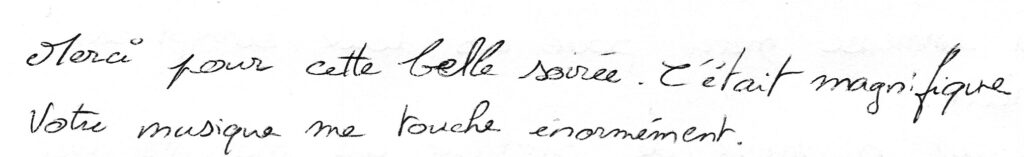 Merci pour cette belle soirée. C'était magnifique
Votre musique me touche énormément.